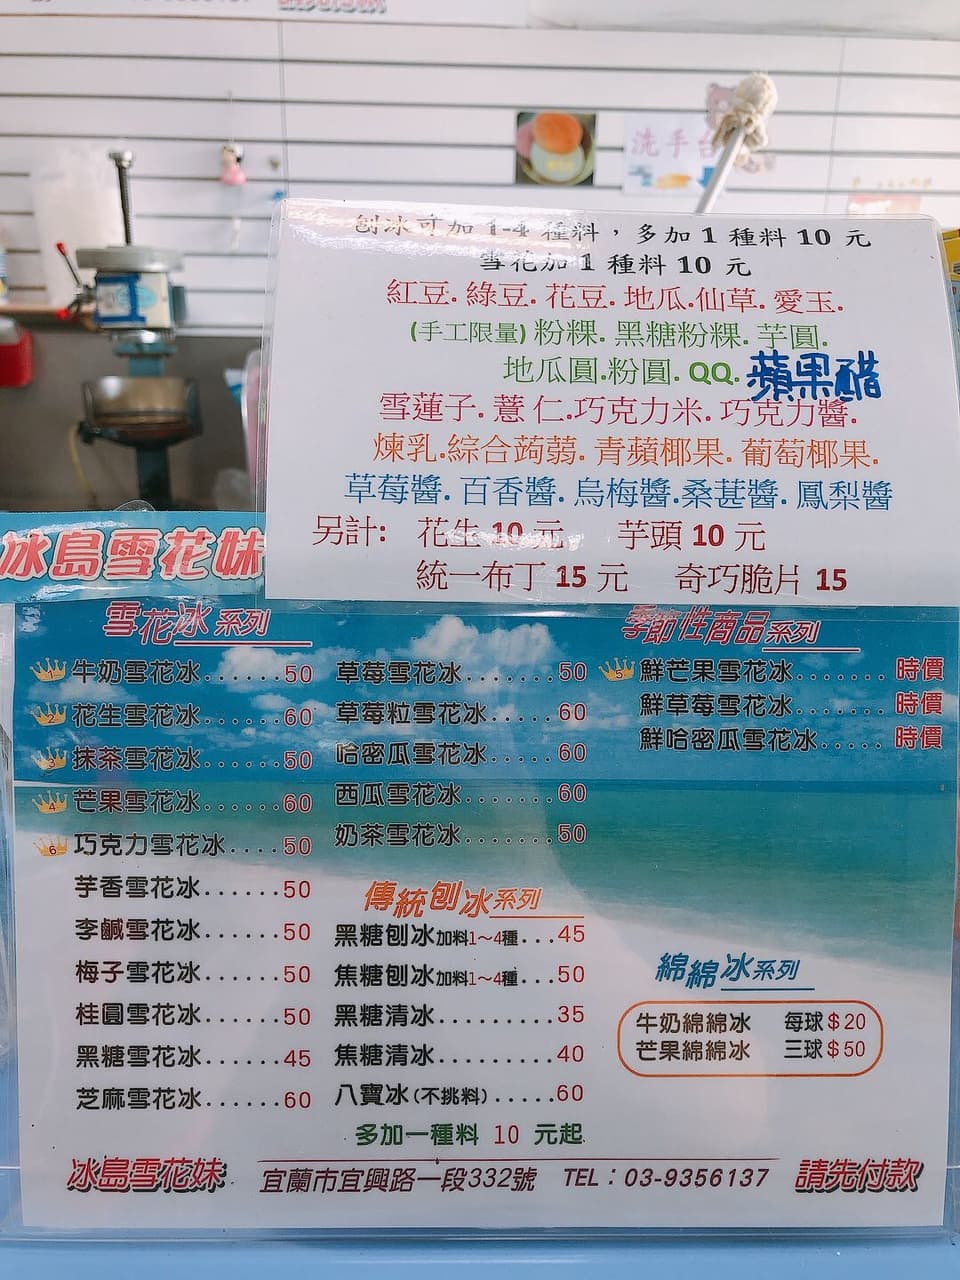 洗手台
刨冰可加 1-4 種料，多加 1 種料 10 元
雪花加 1 種料 10 元
紅豆. 綠豆. 花豆. 地瓜.仙草. 愛玉.
(手工限量) 粉粿. 黑糖粉粿. 芋圓.
地瓜圓.粉圓. QQ. 蘋果醋
雪蓮子. 薏仁.巧克力米. 巧克力醬.
煉乳.綜合蒟蒻. 青蘋椰果. 葡萄椰果.
草莓醬. 百香醬. 烏梅醬.桑葚醬. 鳳梨醬
另計: 花生 10 元 芋頭 10 元
統一布丁 15 元 奇巧脆片 15
冰島雪花妹
雪花冰系列
1 牛奶雪花冰......50
2 花生雪花冰......60
3 抹茶雪花冰......50
4 芒果雪花冰......60
6 巧克力雪花冰....50
芋香雪花冰......50
李鹹雪花冰......50
梅子雪花冰......50
桂圓雪花冰......50
黑糖雪花冰......45
芝麻雪花冰......60
草莓雪花冰.......50
草莓粒雪花冰.....60
哈密瓜雪花冰.....60
西瓜雪花冰.......60
奶茶雪花冰.......50
傳統刨冰系列
黑糖刨冰加料1～4種...45
焦糖刨冰加料1～4種...50
黑糖清冰.........35
焦糖清冰.........40
八寶冰(不挑料).....60
多加一種料 10 元起
季節性商品系列
5 鮮芒果雪花冰....... 時價
鮮草莓雪花冰....... 時價
鮮哈密瓜雪花冰..... 時價
綿綿冰系列
牛奶綿綿冰 每球$20
芒果綿綿冰 三球$50
冰島雪花妹 宜蘭市宜興路一段332號 TEL：03-9356137 請先付款